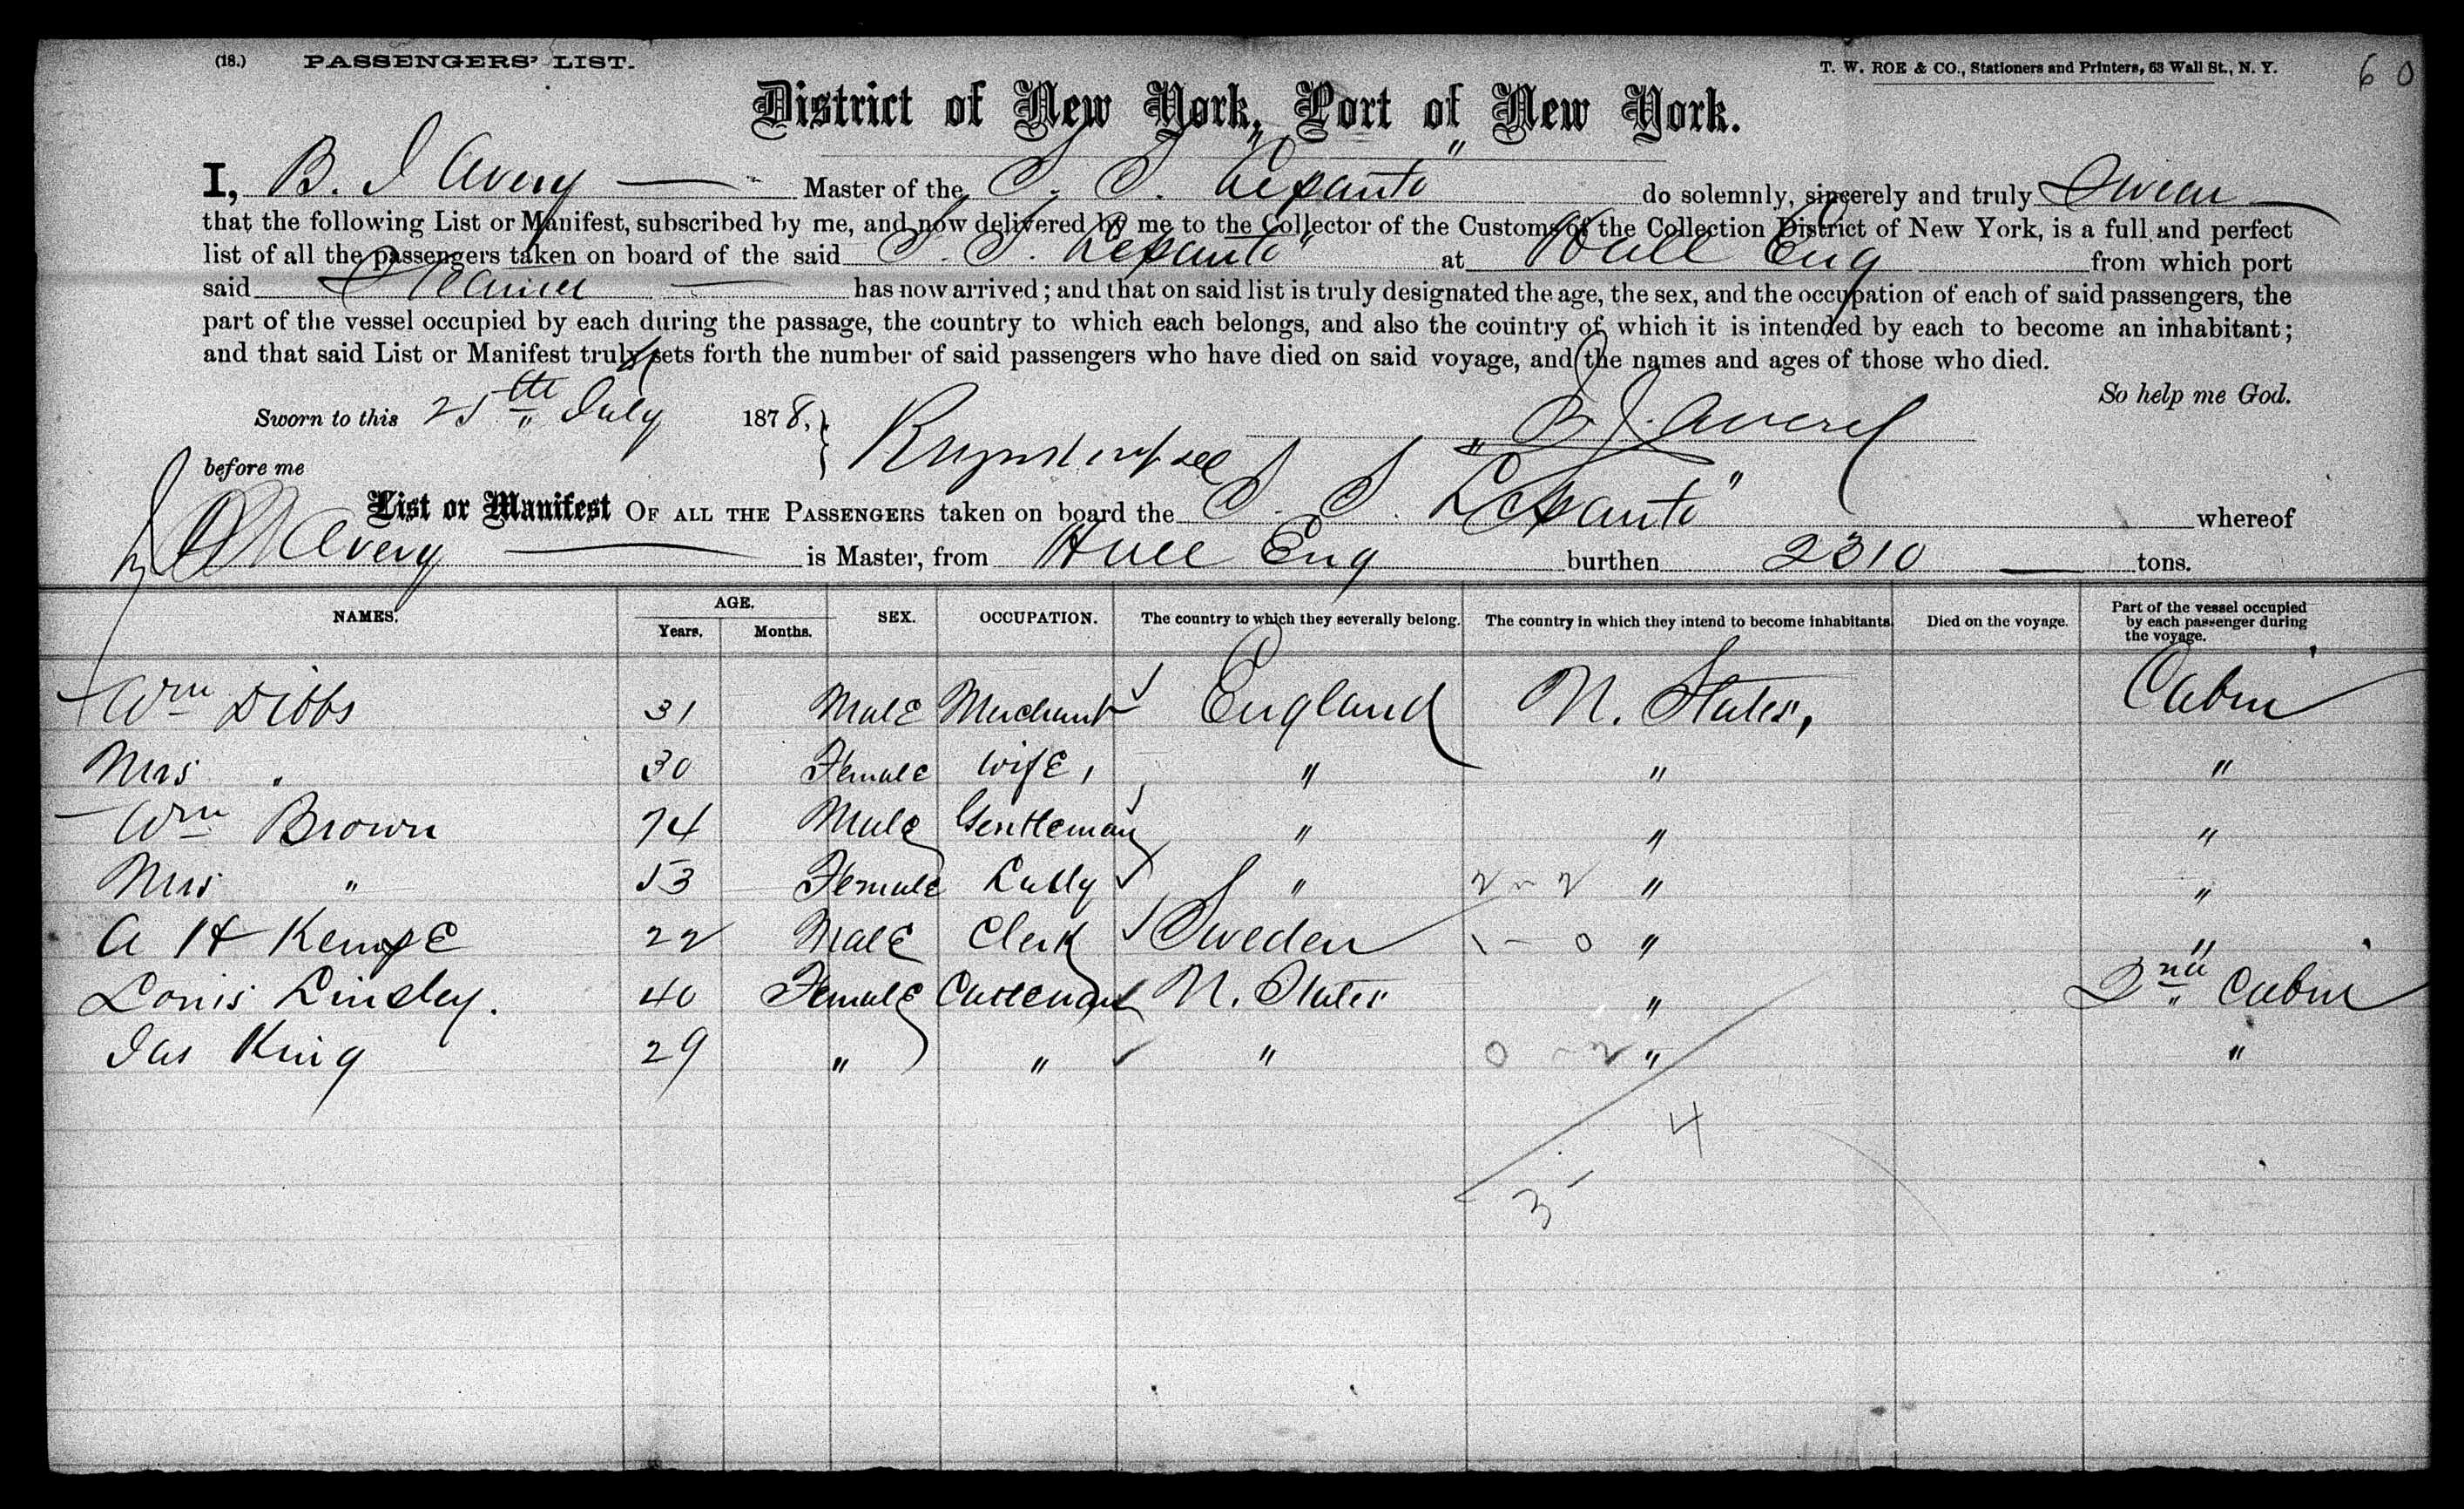 (18.) PASSENGERS' LIST.
T. W. ROE & CO., Stationers and Printers, 63 Wall St., N. Y.
60
District of New York, Port of New York.
I, B. J Avery Master of the S. S. "Lepanto" do solemnly, sincerely and truly Swear
that the following List or Manifest, subscribed by me, and now delivered by me to the Collector of the Customs of the Collection District of New York, is a full and perfect
list of all the passengers taken on board of the said S. S. Lepanto" at Hull Eng from which port
said Steamer has now arrived; and that on said list is truly designated the age, the sex, and the occupation of each of said passengers, the
part of the vessel occupied by each during the passage, the country to which each belongs, and also the country of which it is intended by each to become an inhabitant;
and that said List or Manifest truly sets forth the number of said passengers who have died on said voyage, and the names and ages of those who died.
So help me God.
Sworn to this 25th July 1878,
before me
List or Manifest OF ALL THE PASSENGERS taken on board the S. S. "Lepanto" whereof
Avery is Master, from Hull Eng burthen 2310 tons.
NAMES. AGE. Years. Months. SEX. OCCUPATION. The country to which they severally belong. The country in which they intend to become inhabitants. Died on the voyage. Part of the vessel occupied by each passenger during the voyage.
Wm Dibbs 31 Male Merchant England U. States, Cabin
Mrs " 30 Female Wife, " " "
Wm Brown 74 Male Gentleman " " "
Mrs " 53 Female Lady " " "
A H Kempe 22 Male Clerk Sweden " "
Louis Lindley. 40 Female Cattleman U. States " 2nd Cabin
Jas King 29 " " " " "
4
3